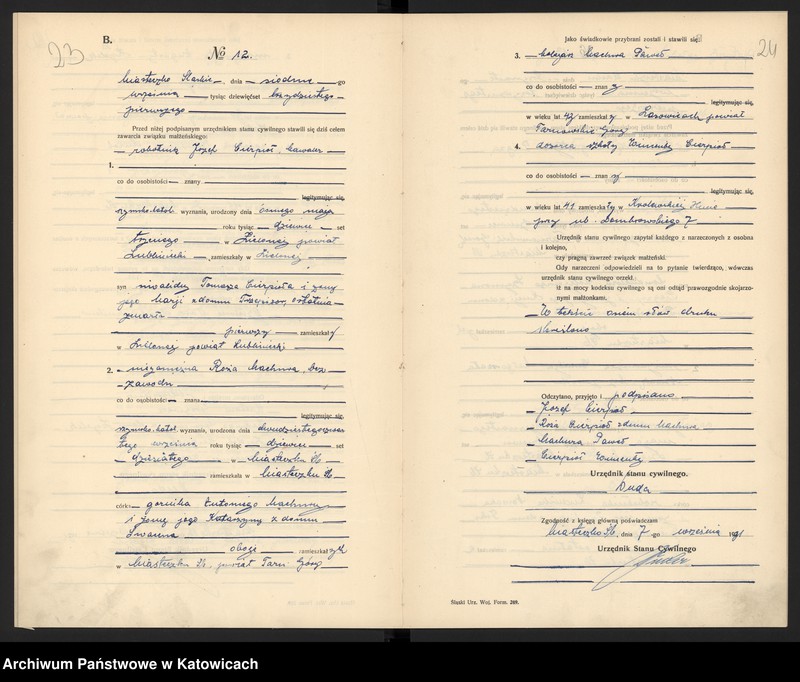 23
B.
№ 12.
Miasteczko Śląskie, dnia siódme go
września tysiąc dziewięćset trzydziestego
pierwszego
Przed niżej podpisanym urzędnikiem stanu cywilnego stawili się dziś celem
zawarcia związku małżeńskiego:
robotnik Józef Cierpioł, kawaler
1.
co do osobistości znany
legitymując się,
rzymsko-katol. wyznania, urodzony dnia ósmego maja
roku tysiąc dziewięć set
trzeciego w Zielonej powiat
Lubliniecki zamieszkały w Zielonej
syn inwalidy Tomasza Cierpioła i żony
jego Marji z domu, ostatnia
zmarła
pierwszy zamieszkały
w Zielonej powiat Lubliniecki
2. niezamężna Róża Machura, bez
zawodu
co do osobistości znana
legitymując się,
rzymsko-katol. wyznania, urodzona dnia
tego września roku tysiąc dziewięć set
dziesiątego w Miasteczku Śl.
zamieszkała w Miasteczku Śl.
córka górnika Antoniego Machury
i żony jego Katarzyny z domu
oboje zamieszkałych
w Miasteczku Śl. powiat Tarn. Góry
24
jako świadkowie przybrani zostali i stawili się:
3. Machura Paweł
co do osobistości znany
legitymując się,
w wieku lat zamieszkały w powiat
Tarnowskie Góry
4. dozorca szkoły Cierpioł
co do osobistości znany
legitymując się,
w wieku lat 41 zamieszkały w Królewskiej Hucie
przy ul. Dombrowskiego 7
Urzędnik stanu cywilnego zapytał każdego z narzeczonych z osobna
i kolejno,
czy pragną zawrzeć związek małżeński.
Gdy narzeczeni odpowiedzieli na to pytanie twierdząco, wówczas
urzędnik stanu cywilnego orzekł
iż na mocy kodeksu cywilnego są oni odtąd prawozgodnie skojarzo-
nymi małżonkami.
W tekście osiem słów druku
skreślono
Odczytano, przyjęto i podpisano
Józef Cierpioł
Róża Cierpioł z domu Machura
Machura Paweł
Cierpioł
Urzędnik stanu cywilnego.
Duda
Zgodność z księgą główną poświadczam
Miasteczko Śl., dnia 7 go września 1931
Urzędnik Stanu Cywilnego
Śląski Urz. Woj. Form. 269.
Archiwum Państwowe w Katowicach